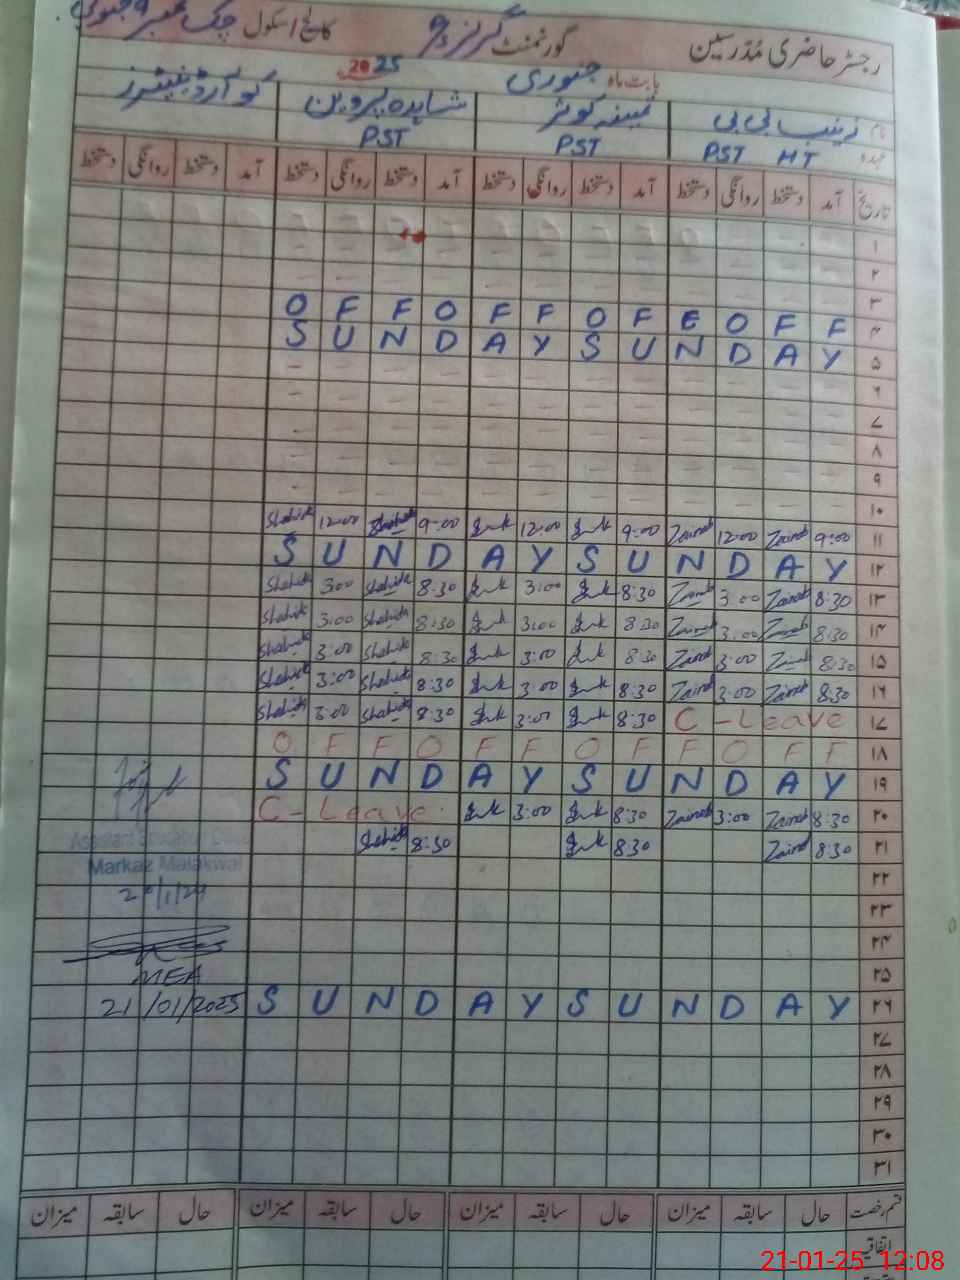 رجسٹر حاضری مدرسین گورنمنٹ گرلز کالج / سکول چک نمبر
بابت ماہ جنوری 2025
نام زینب بی بی ثمینہ کوثر شاہدہ پروین کوآرڈینیٹرز
عہدہ PST HT PST PST
تاریخ آمد دستخط روانگی دستخط آمد دستخط روانگی دستخط آمد دستخط روانگی دستخط آمد دستخط روانگی دستخط
۱
۲
۳
O F F O F F O F F O F F ۴
S U N D A Y S U N D A Y ۵
۶
۷
۸
۹
۱۰
Shahida 12:00 Shahida 9:00 12:00 9:00 Zainab 12:00 Zainab 9:00 ۱۱
S U N D A Y S U N D A Y ۱۲
Shahida 3:00 Shahida 8:30 3:00 8:30 Zainab 3:00 Zainab 8:30 ۱۳
Shahida 3:00 Shahida 8:30 3:00 8:30 Zainab 3:00 Zainab 8:30 ۱۴
Shahida 3:00 Shahida 8:30 3:00 8:30 Zainab 3:00 Zainab 8:30 ۱۵
Shahida 3:00 Shahida 8:30 3:00 8:30 Zainab 3:00 Zainab 8:30 ۱۶
Shahida 3:00 Shahida 8:30 3:00 8:30 C - Leave ۱۷
O F F O F F O F F O F F ۱۸
S U N D A Y S U N D A Y ۱۹
C - Leave 3:00 8:30 Zainab 3:00 Zainab 8:30 ۲۰
Shahida 8:30 8:30 Zainab 8:30 ۲۱
Assistant Education Officer
Markaz Malakwal
۲۲
۲۳
۲۴
MEA ۲۵
21/01/2025 S U N D A Y S U N D A Y ۲۶
۲۷
۲۸
۲۹
۳۰
۳۱
قسم رخصت حال سابقہ میزان حال سابقہ میزان حال سابقہ میزان حال سابقہ میزان
اتفاقیہ
21-01-25 12:08